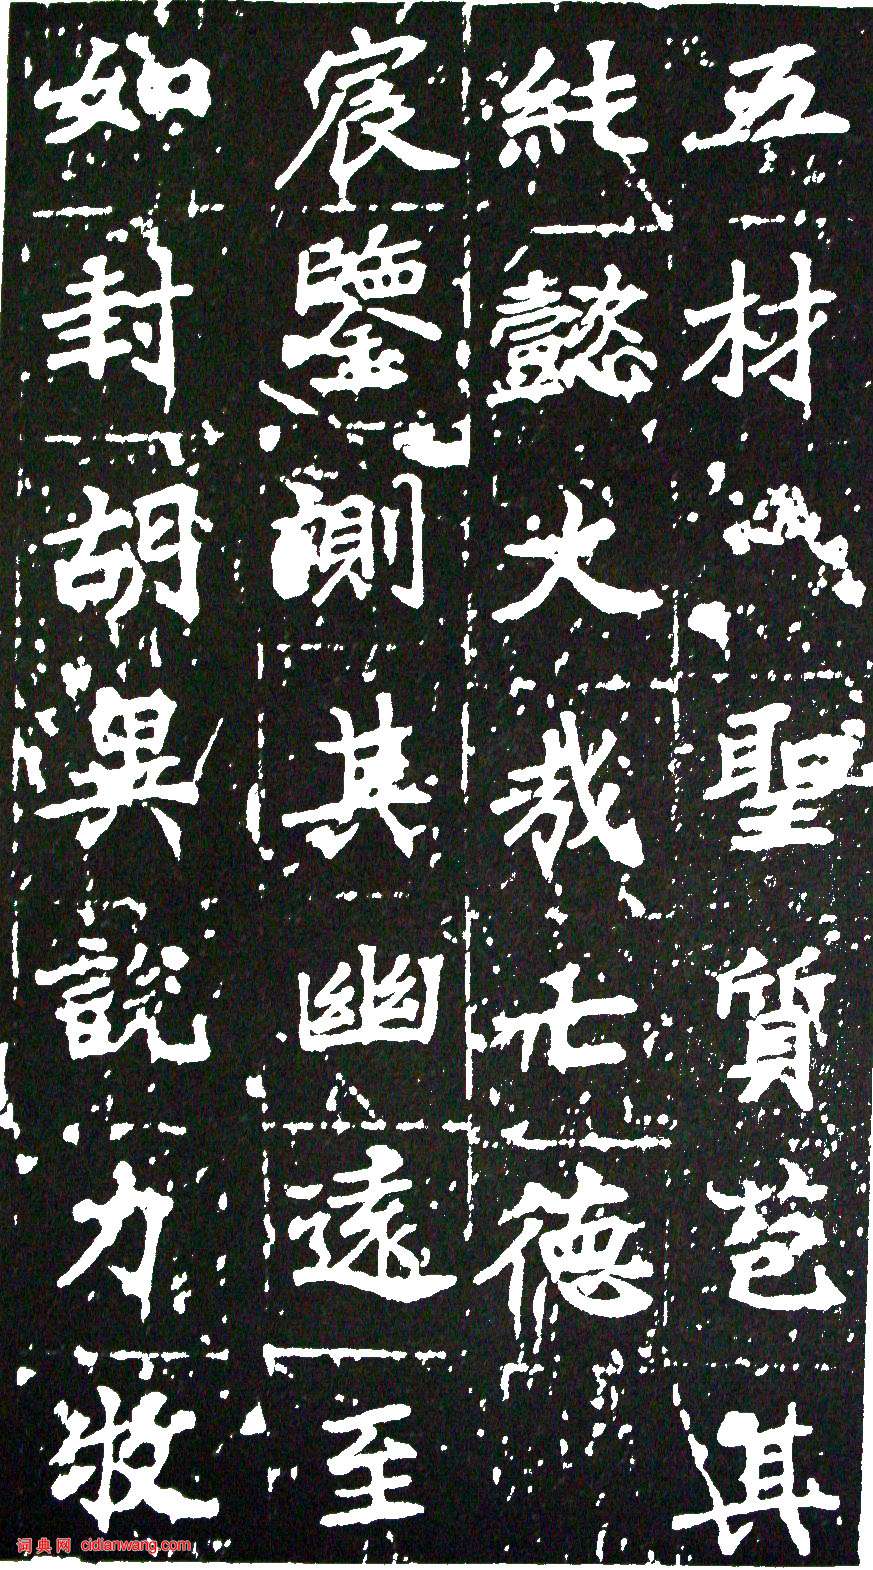 五材聖質苞其
純懿大哉德
宸鑒測其幽遠至
如封胡異說力牧
词典网 cidianwang.com